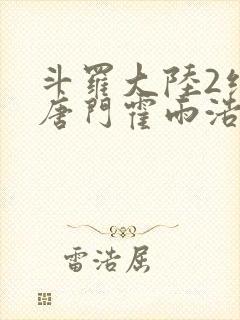 斗羅大陸2
唐門霍雨浩
雷浩屈